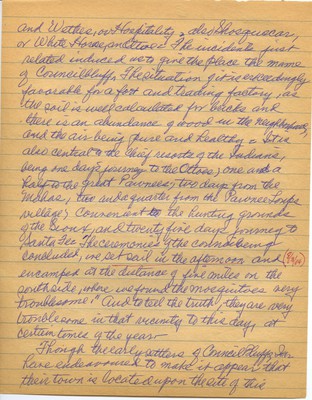 and Wethea, or Hospitality, also Shosquscan,
or White Horse, an Ottoe." The incidents just
related induced us to give the place the name
of Councilbluff. The situation of it is exceedingly
favorable for a fort and trading factory, as
the soil is well calculated for bricks and
there is an abundance of wood in the neighborhood,
and the air being pure and healthy. It is
also central to the chief resorts of the Indians,
being one day's journey to the Ottoes; one and a
half to the great Pawnees; two days from the
Mahas; two and a quarter from the Pawnee Loups
village; convenient to the hunting grounds
of the Sioux; and twenty five days journey to
Santa Fee. The ceremonies of the council being
concluded, we set sail in the afternoon and
encamped at the distance of five miles on the
south side, where we found the mosquitoes very
troublesome." And to tell the truth, they are very
troublesome in that vicinity to this day, at
certain times of the year.
Though the early settlers of Council Bluffs, Iow
have endeavoured to make it appear that
their town is located upon the site of this